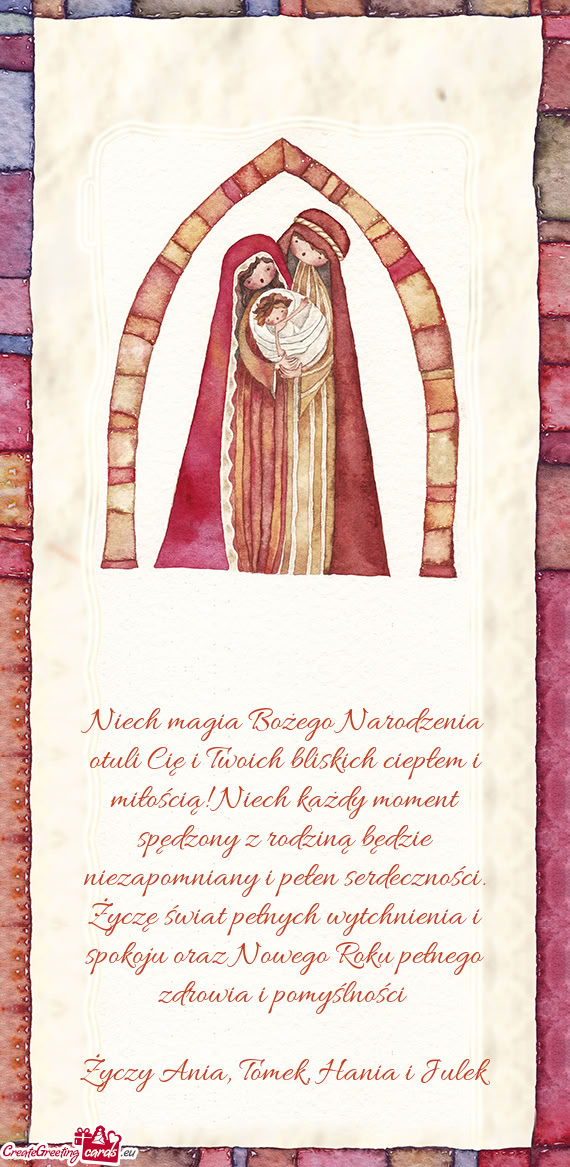 Niech magia Bożego Narodzenia
otuli Cię i Twoich bliskich ciepłem i
miłością! Niech każdy moment
spędzony z rodziną będzie
niezapomniany i pełen serdeczności.
Życzę świat pełnych wytchnienia i
spokoju oraz Nowego Roku pełnego
zdrowia i pomyślności
Życzy Ania, Tomek, Hania i Julek
CreateGreeting cards .eu